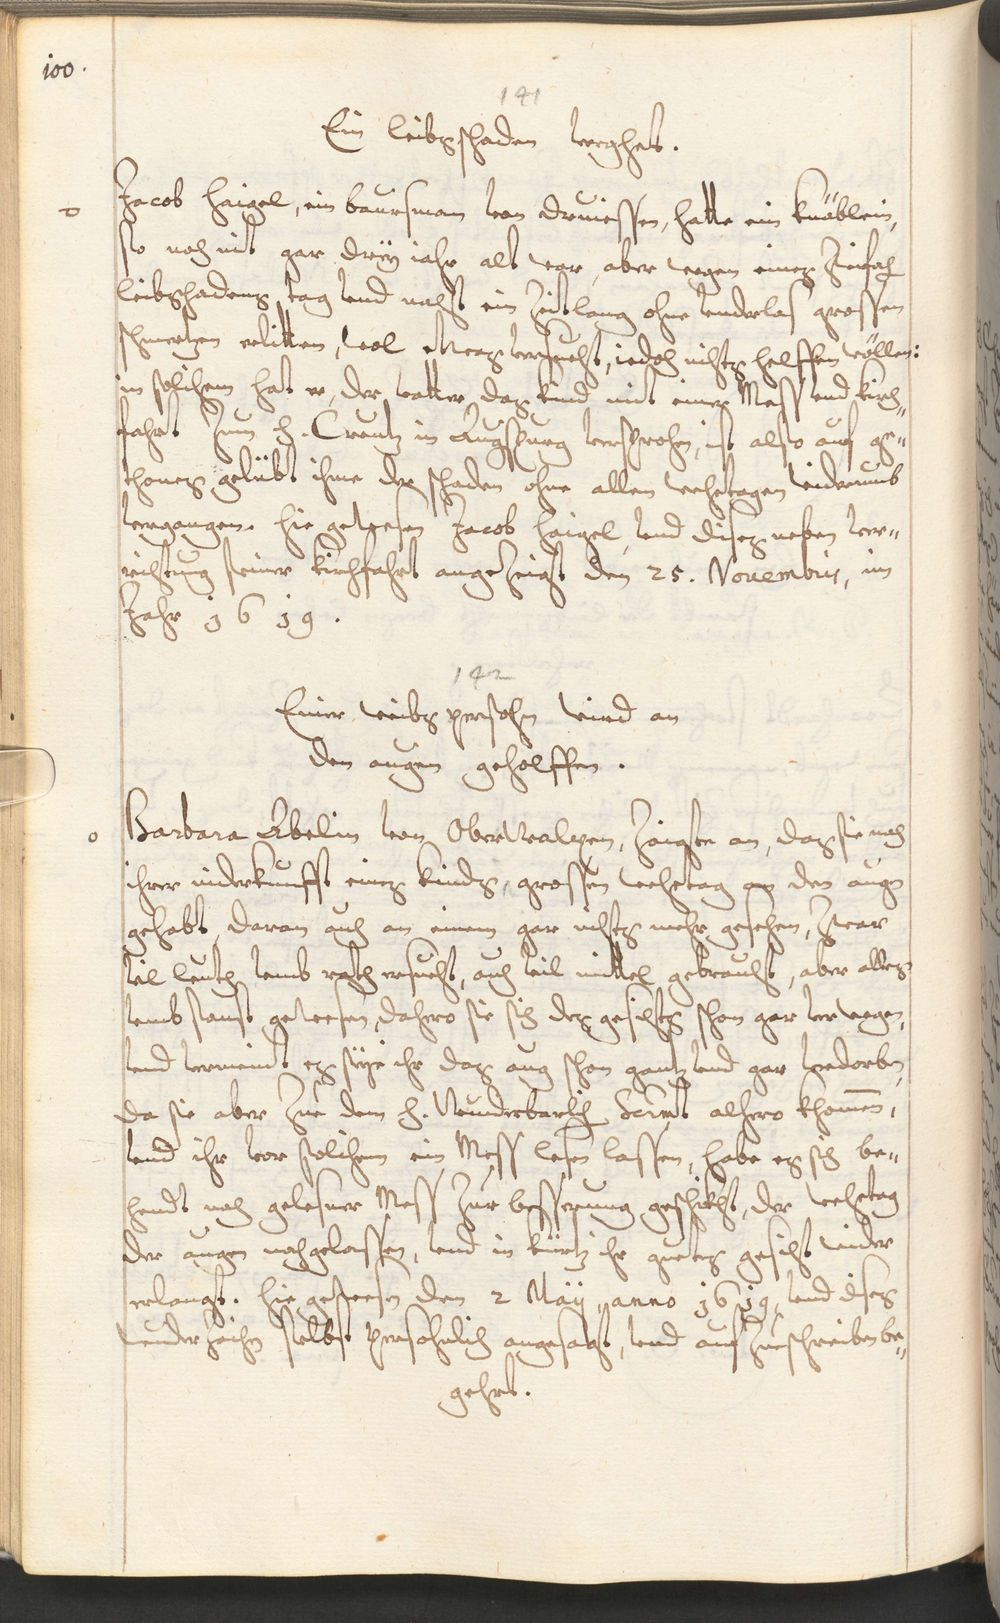 100.
141
Ein leibsschaden verghet.
Jacob Haigel, ein baursman von Druiessen, hatte ein knäblein,
so noch nit gar drey iahr alt war, aber wegen eines
leibschadens, tag vnd nacht ein Zeitlang ohne vnderlas grossen
schmertzen erlitten, wol etwas versuecht, iedoch nichts helffen wöllen:
in solichem hat er, der vatter, das kind mit einer Mess vnd kirch„
fahrt Zum H. Creutz in Augspurg versprochen, ist also auf ge„
thones gelübt ihme der schaden ohne allen wehetagen widerumb
vergangen. Hie gewesen Jacob Haigel, vnd dises neben ver„
richtung seiner kirchfahrt angeZeigt den 25. Nouembris, im
Jahr 1619.
142
Einer weibs persohn wird an
den augen geholffen.
Barbara Abelin von Oberwalpen, Zaigte an, das sie nach
ihrer niderkunfft eines kinds, grossen wehetag an den augen
gehabt, daran auch an einem gar nichts mehr gesehen, Zwar
vil leuth vmb rath ersuecht, auch vil mittel gebraucht, aber alles
vmb sonst gewesen, dahero sie sich des gesichts schon gar verwegen,
vnd vermeint es seye ihr das aug schon gantz vnd gar verdorben,
da sie aber Zue dem H. Wunderbarlich Sacramt alhero khommen,
vnd ihr vor solichem ein Mess lesen lassen, habe es sich be„
hendt nach gelesner Mess Zur besserung geschickht, der wehetag
der augen nachgelassen, vnd in kurtz ihr guetes gesicht wider
erlangt. Hie gewesen den 2 Maÿ, anno 1619, vnd dises
wunderZaichen selbst persohnlich angesagt, vnd aufZueschreiben be„
gehrt.